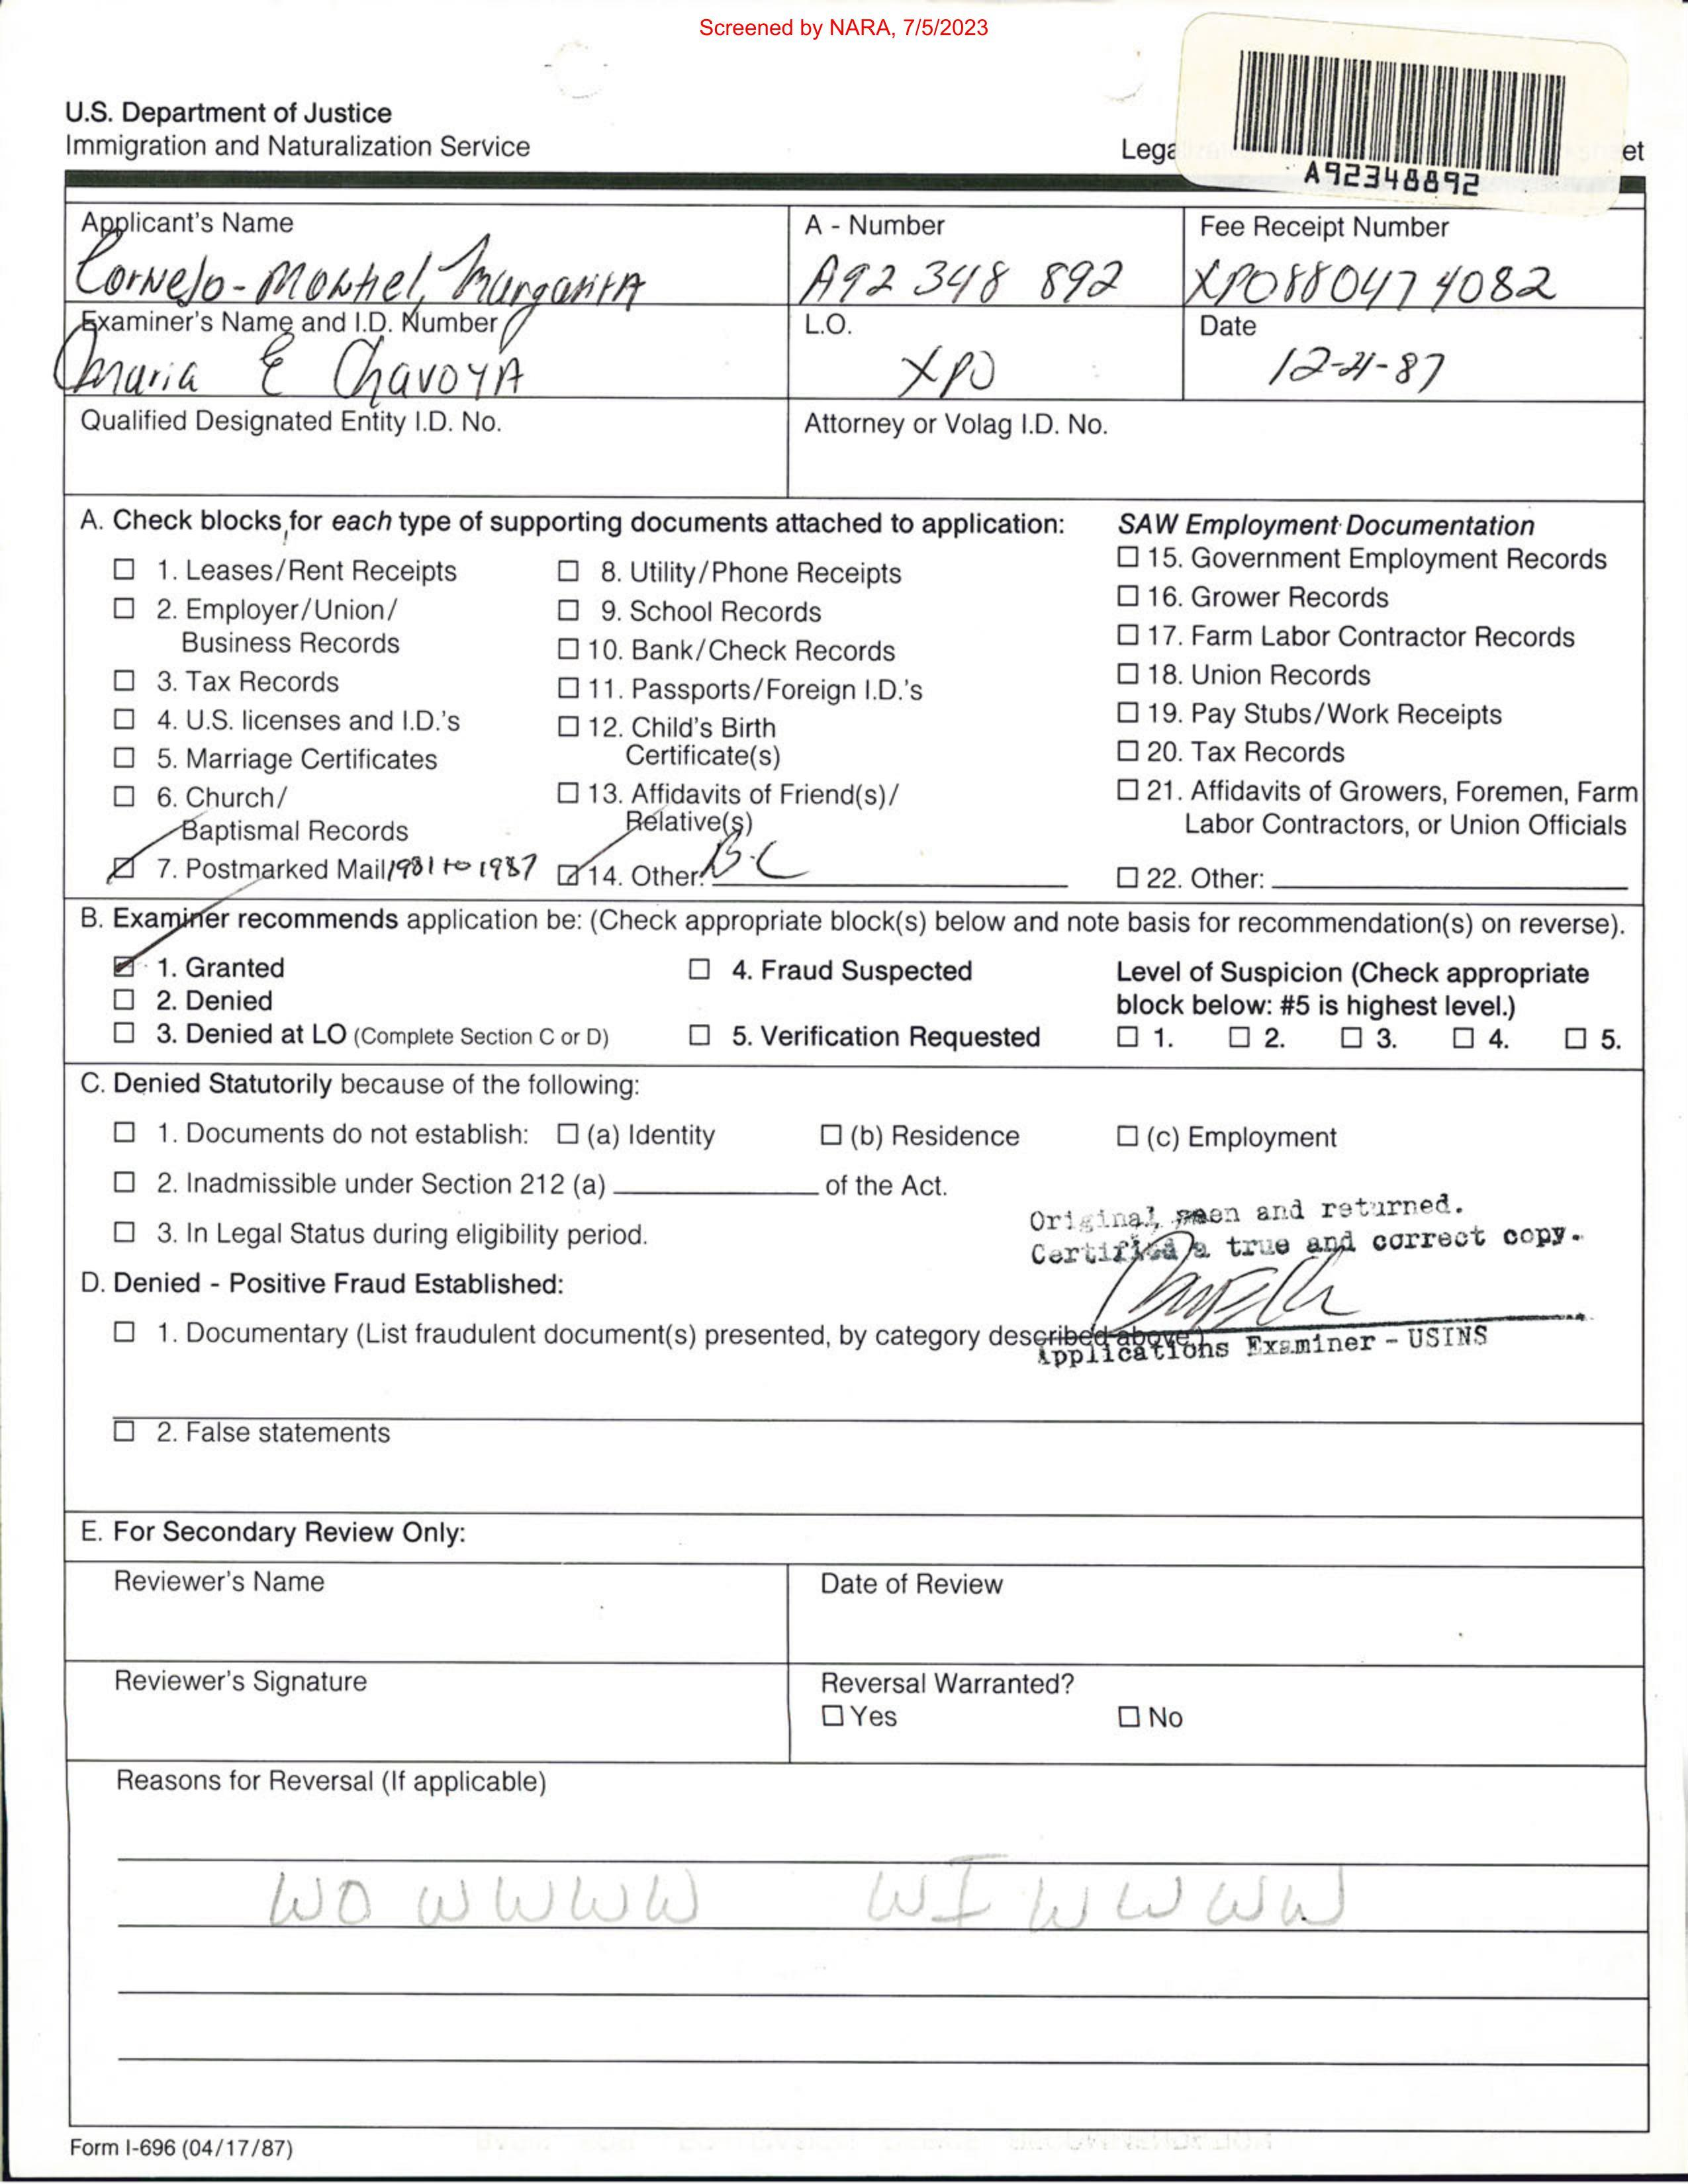 Screened by NARA, 7/5/2023
U.S. Department of Justice
Immigration and Naturalization Service
Lega et
A92348892
Applicant's Name
Cornejo-Montiel, Margarita
A - Number
A92 348 892
Fee Receipt Number
XPO880474082
Examiner's Name and I.D. Number
Maria E Chavoya
L.O.
XPO
Date
12-21-87
Qualified Designated Entity I.D. No.
Attorney or Volag I.D. No.
A. Check blocks for each type of supporting documents attached to application:
☐ 1. Leases/Rent Receipts
☐ 2. Employer/Union/
Business Records
☐ 3. Tax Records
☐ 4. U.S. licenses and I.D.'s
☐ 5. Marriage Certificates
☐ 6. Church/
Baptismal Records
☑ 7. Postmarked Mail 1981 to 1987
☐ 8. Utility/Phone Receipts
☐ 9. School Records
☐ 10. Bank/Check Records
☐ 11. Passports/Foreign I.D.'s
☐ 12. Child's Birth
Certificate(s)
☐ 13. Affidavits of Friend(s)/
Relative(s)
☑ 14. Other: B.C
SAW Employment Documentation
☐ 15. Government Employment Records
☐ 16. Grower Records
☐ 17. Farm Labor Contractor Records
☐ 18. Union Records
☐ 19. Pay Stubs/Work Receipts
☐ 20. Tax Records
☐ 21. Affidavits of Growers, Foremen, Farm
Labor Contractors, or Union Officials
☐ 22. Other:
B. Examiner recommends application be: (Check appropriate block(s) below and note basis for recommendation(s) on reverse).
☑ 1. Granted
☐ 2. Denied
☐ 3. Denied at LO (Complete Section C or D)
☐ 4. Fraud Suspected
☐ 5. Verification Requested
Level of Suspicion (Check appropriate
block below: #5 is highest level.)
☐ 1. ☐ 2. ☐ 3. ☐ 4. ☐ 5.
C. Denied Statutorily because of the following:
☐ 1. Documents do not establish: ☐ (a) Identity ☐ (b) Residence ☐ (c) Employment
☐ 2. Inadmissible under Section 212 (a) of the Act.
☐ 3. In Legal Status during eligibility period.
Original seen and returned.
Certified a true and correct copy.
Applications Examiner - USINS
D. Denied - Positive Fraud Established:
☐ 1. Documentary (List fraudulent document(s) presented, by category described above.)
☐ 2. False statements
E. For Secondary Review Only:
Reviewer's Name
Date of Review
Reviewer's Signature
Reversal Warranted?
☐ Yes ☐ No
Reasons for Reversal (If applicable)
WO W W W W WI W W W W
Form I-696 (04/17/87)